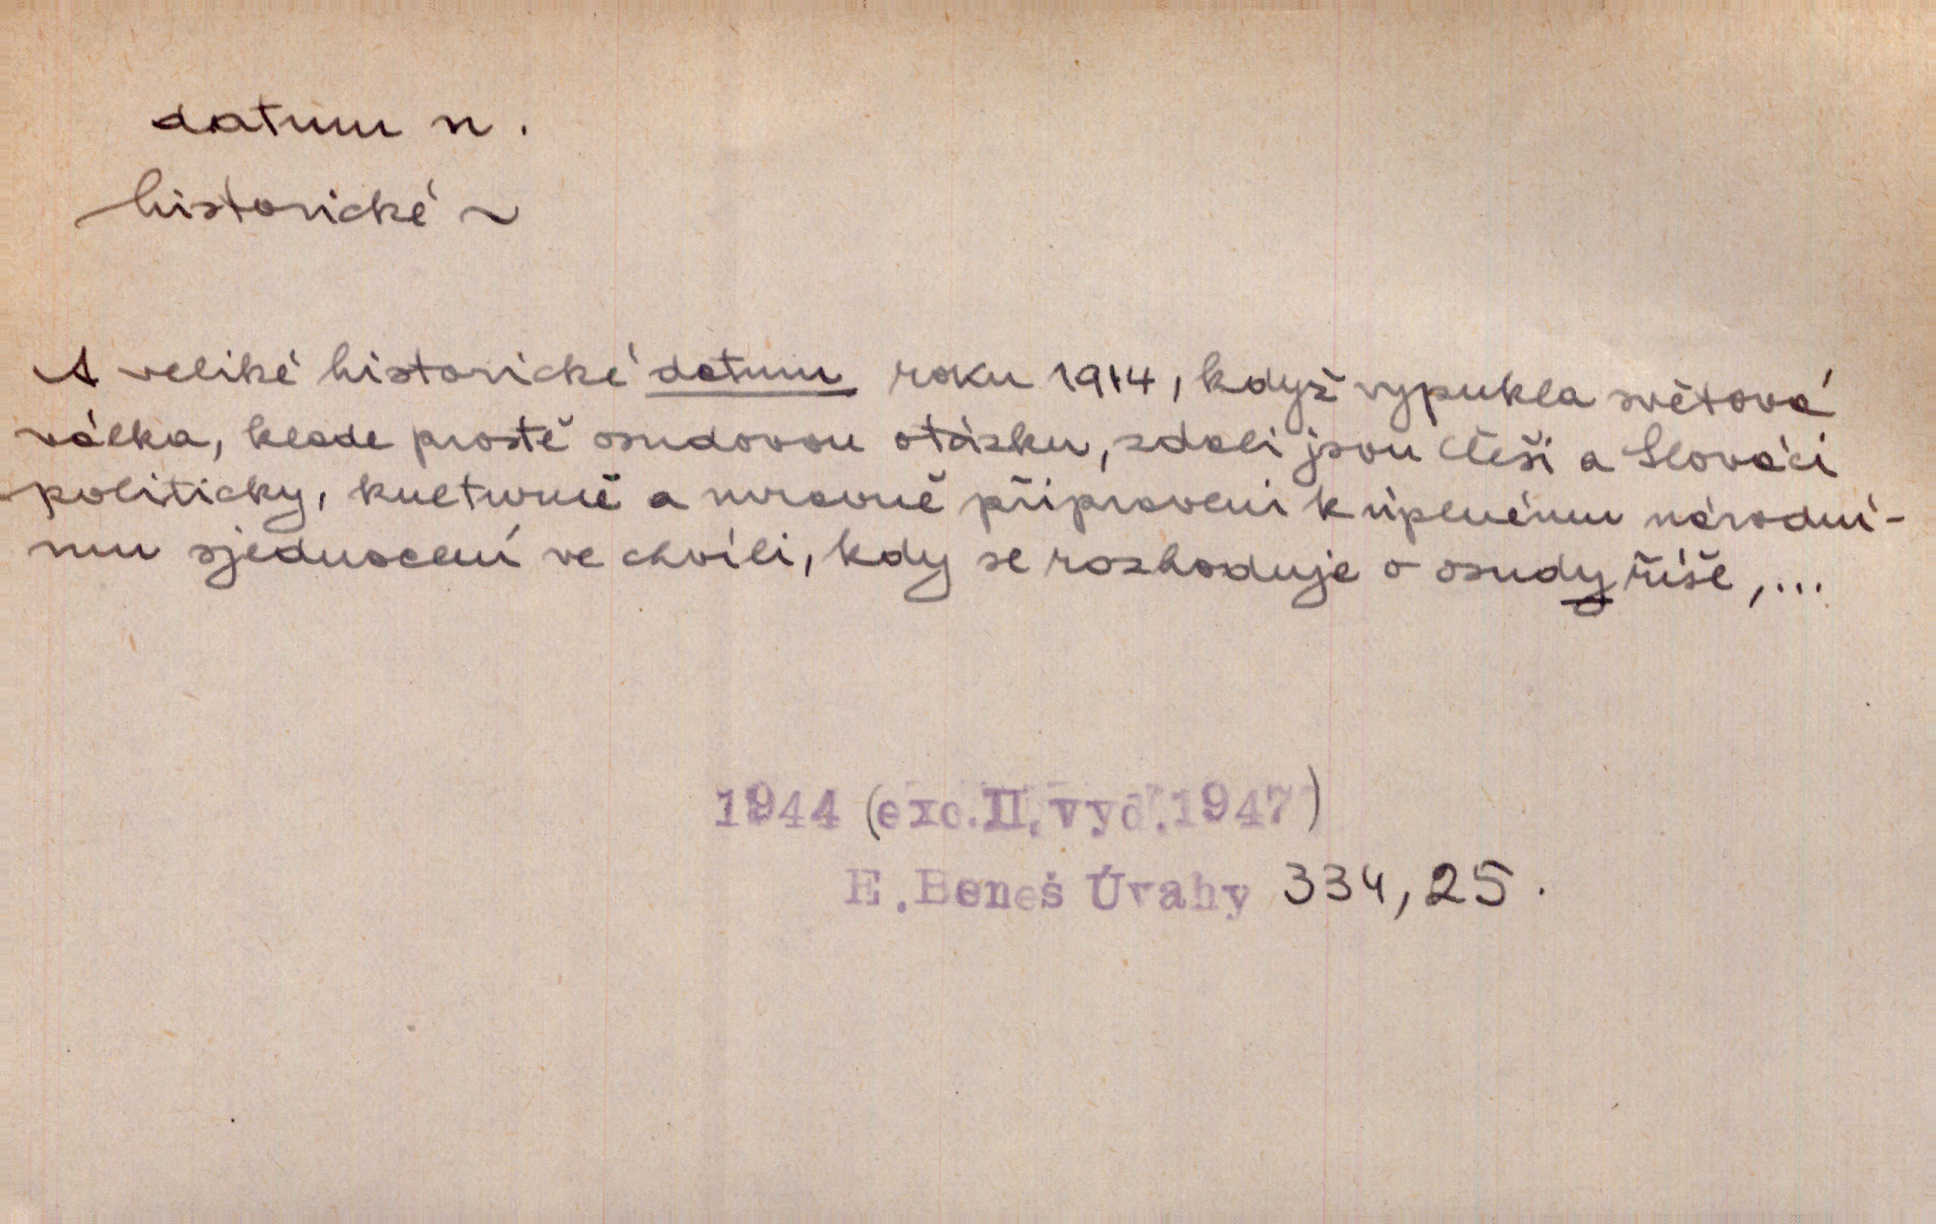 datum n.
historické ~
A veliké historické datum roku 1914, když vypukla světová
válka, klade prostě osudovou otázku, zdali jsou Češi a Slováci
politicky, kulturně a mravně připraveni k úplnému národní-
mu sjednocení ve chvíli, kdy se rozhoduje o osudy říše,...
1944 (exc.II.vyd.1947)
E.Beneš Úvahy 334,25.